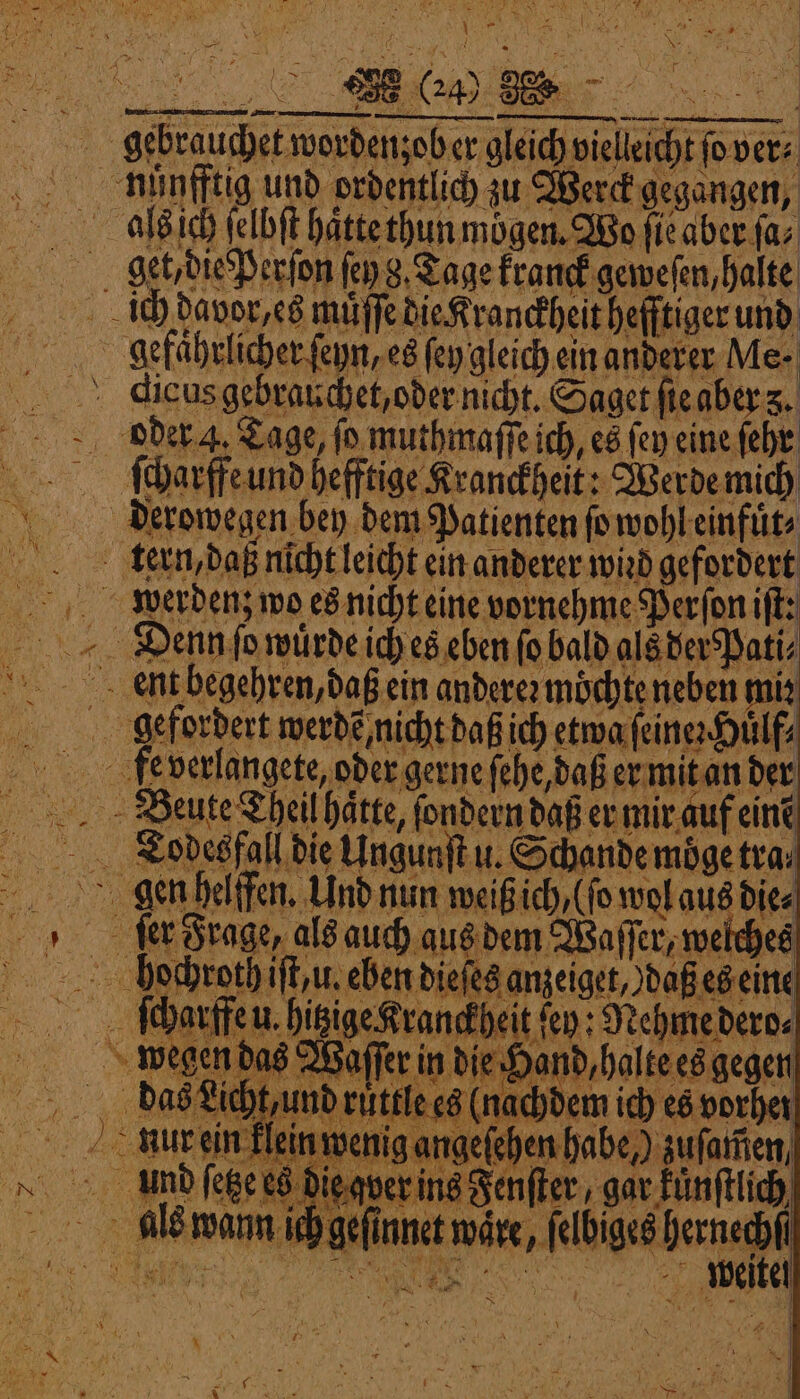 (24)
gebrauchet worden; ob er gleich vielleicht ſo ver⸗
nuͤnfftig und ordentlich zu Werck gegangen,
als ich ſelbſt haͤtte thun moͤgen. Wo ſie aber ſa⸗
get, die Perſon ſey 8. Tage kranck geweſen, halte
ich davor, es muͤſſe die Kranckheit hefftiger und
gefaͤhrlicher ſeyn, es ſey gleich ein anderer Me-
dicus gebrauchet, oder nicht. Saget ſie aber 3.
oder 4. Tage, ſo muthmaſſe ich, es ſey eine ſehr
ſcharffe und hefftige Kranckheit: Werde mich
derowegen bey dem Patienten ſo wohl einfuͤt⸗
tern, daß nicht leicht ein anderer wird gefordert
werden; wo es nicht eine vornehme Perſon iſt:
Denn ſo wuͤrde ich es eben ſo bald als der Pati⸗
ent begehren, daß ein anderer moͤchte neben mir
gefordert werdẽ, nicht daß ich etwa ſeiner Huͤlf⸗
fe verlangete, oder gerne ſehe, daß er mit an der
Beute Theil haͤtte, ſondern daß er mir auf einẽ
Todesfall die Ungunſt u. Schande moͤge tra⸗
gen helffen. Und nun weiß ich, (ſo wol aus die⸗
ſer Frage, als auch aus dem Waſſer, welches
hochroth iſt, u. eben dieſes anzeiget,) daß es eine
ſcharffe u. hitzige Kranckheit ſey: Nehme dero⸗
wegen das Waſſer in die Hand, halte es gegen
das Licht, und ruͤttle es (nachdem ich es vorher
nur ein klein wenig angeſehen habe,) zuſam̃en,
und ſetze es die qver ins Fenſter, gar kuͤnſtlich,
als wann ich geſinnet waͤre, ſelbiges hernechſt
weiter